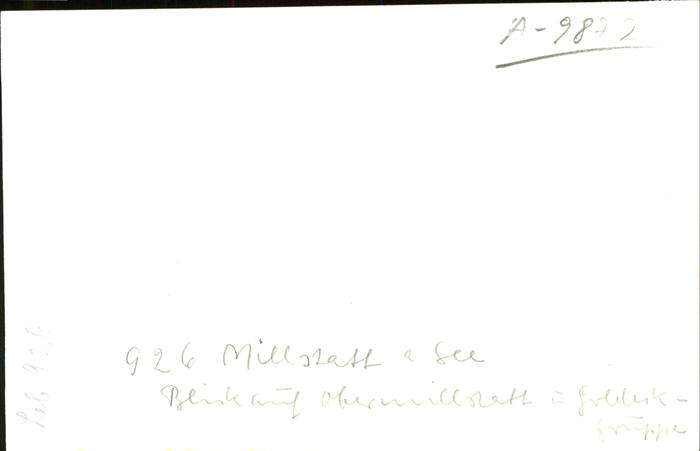 A-9872
926 Millstatt a See
Blick auf Obermillstatt u Goldeck-
gruppe
926